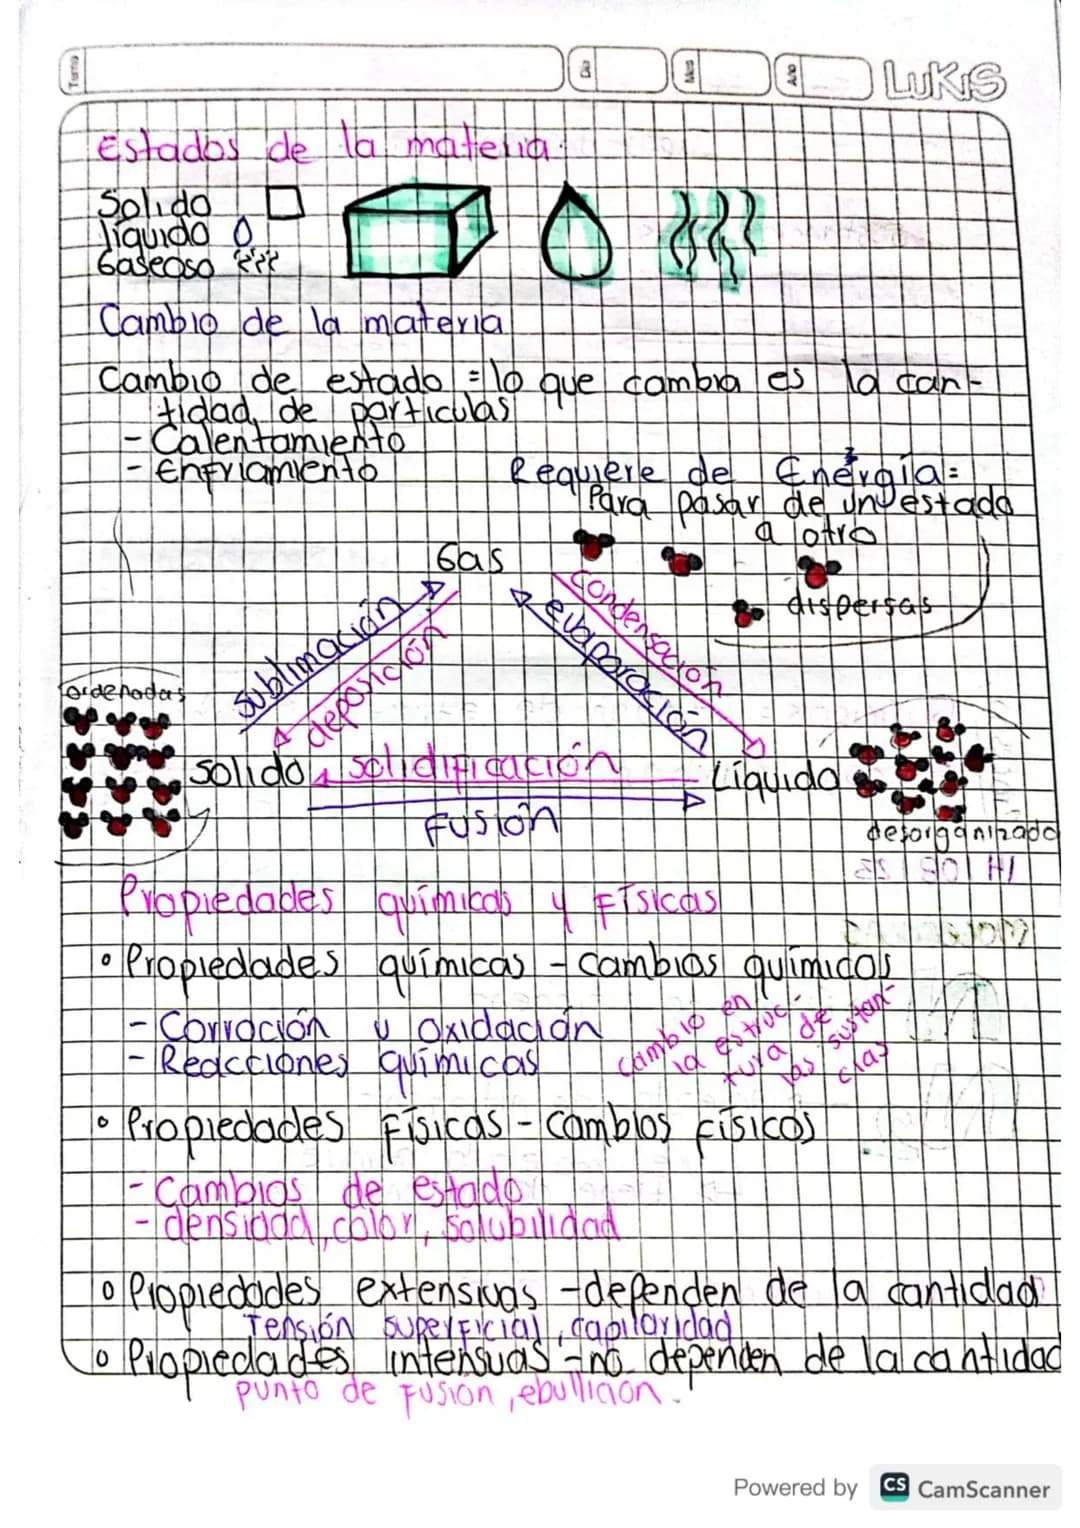 Tema
Dia
Mes
Año
LUKIS
Estados de la materia:
Solido
líquido
Gaseoso
Cambio de la materia
Cambio de estado = lo que cambia es la can-
tidad de particulas
- Calentamiento
- Enfriamiento
Requiere de Energía =
Para pasar de un estado
a otro
Gas
dispersas
condensación
evaporación
sublimación
deposición
ordenadas
Solido
solidificación
Líquido
Fusión
desorganizado
Propiedades químicas y Físicas
• Propiedades químicas - cambios químicos
- Corroción u oxidación
- Reacciones químicas
cambio en
la estruc-
tura de
las sustan-
cias
• Propiedades Físicas - cambios físicos
- Cambios de estado
- densidad, color, solubilidad
• Propiedades extensivas - dependen de la cantidad
Tensión superficial, capilaridad
• Propiedades intensivas - no dependen de la cantidad
punto de fusion, ebullición.
Powered by CS CamScanner